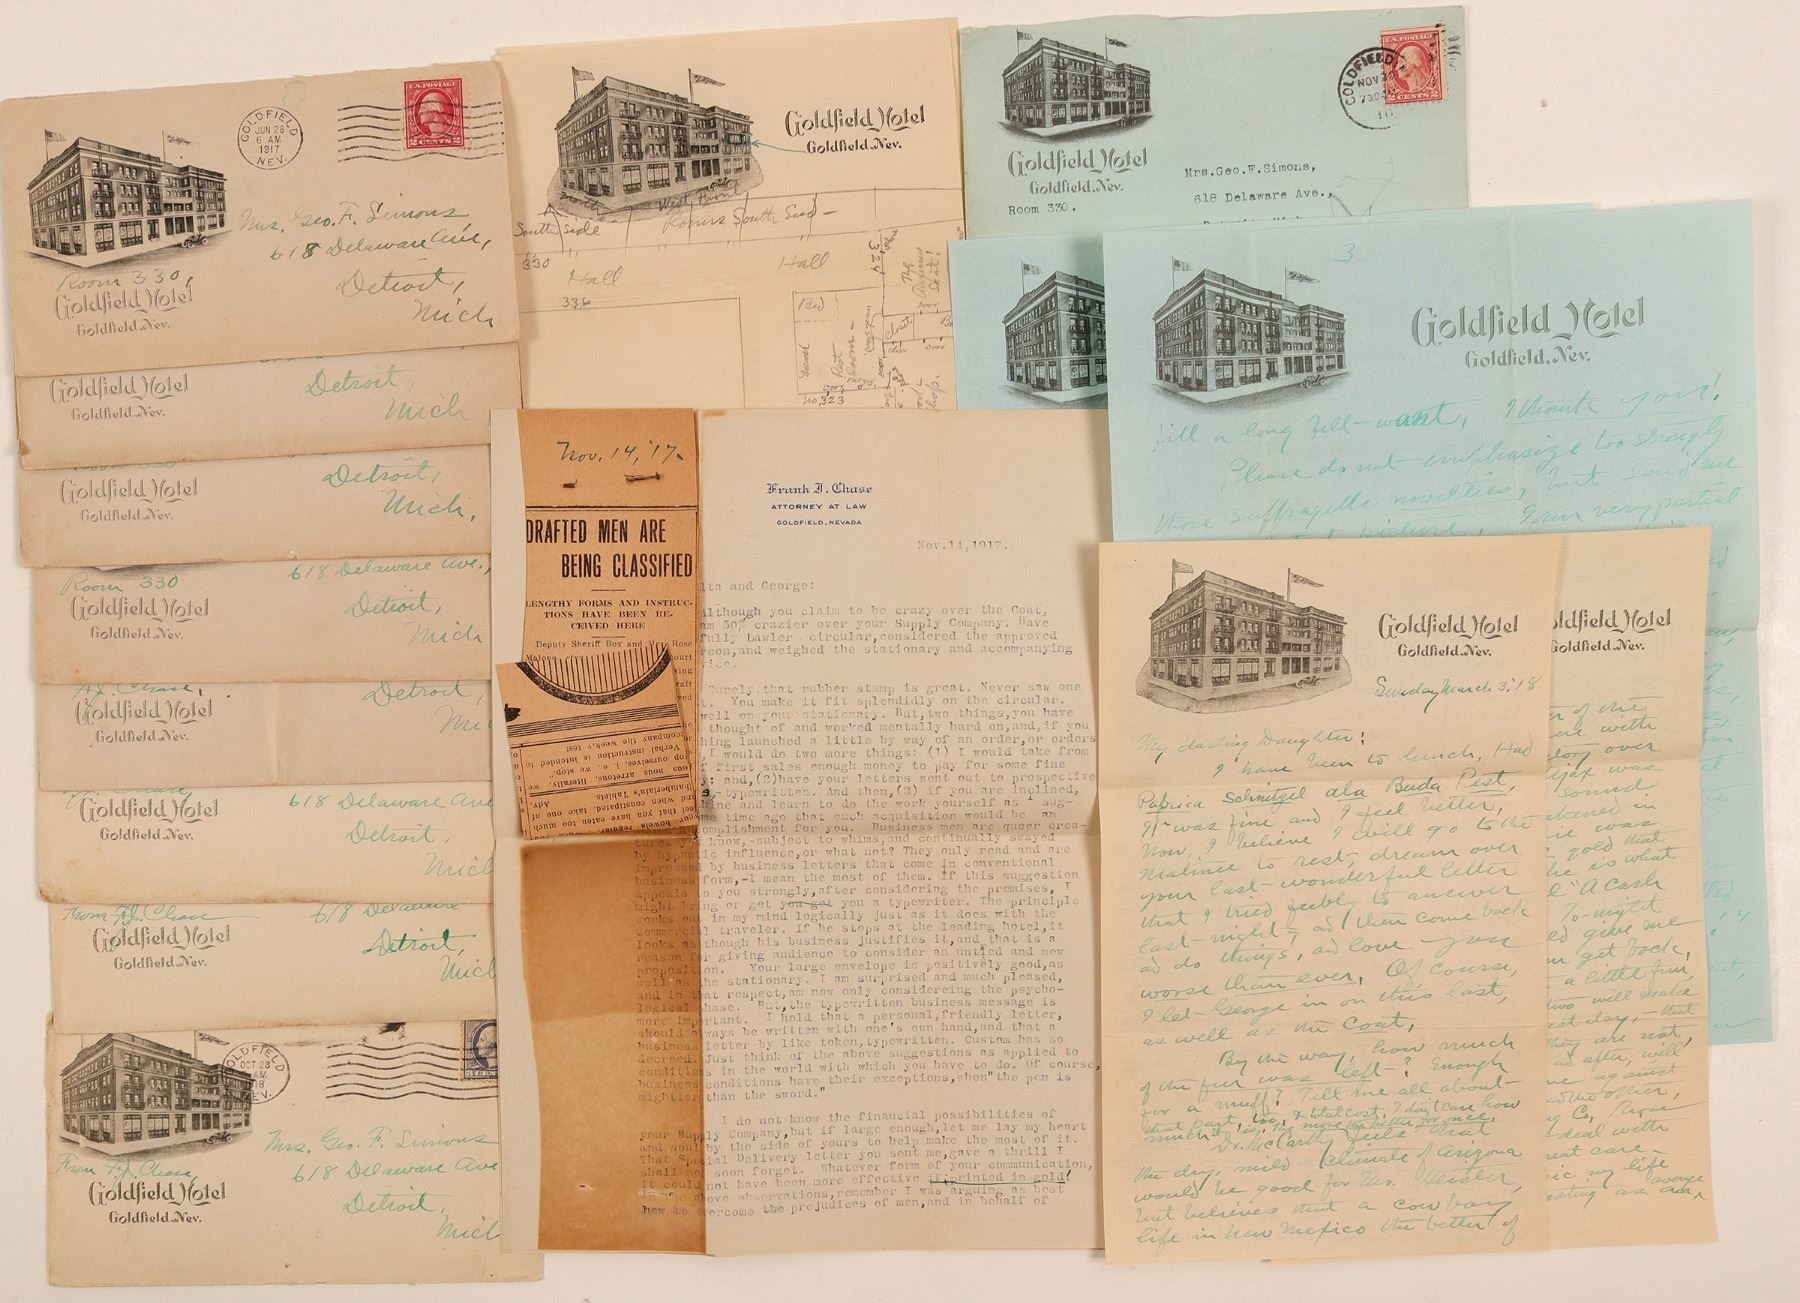 GOLDFIELD
JUN 26
6 AM
1917
NEV.
U.S. POSTAGE
2 CENTS 2
Mrs. Geo. F. Simons
618 Delaware Ave,
Detroit,
Mich
Room 330,
Goldfield Hotel
Goldfield, Nev.
Goldfield Hotel
Goldfield, Nev.
Detroit,
Mich
Goldfield Hotel
Goldfield, Nev.
Detroit,
Mich,
Room 330
Goldfield Hotel
Goldfield, Nev.
618 Delaware Ave.,
Detroit,
Mich
Chase,
Goldfield Hotel
Goldfield, Nev.
Detroit,
Mi
Goldfield Hotel
Goldfield, Nev.
618 Delaware Ave
Detroit,
Mich
From F.J. Chase
Goldfield Hotel
Goldfield, Nev.
618 Delaware
Detroit,
Mich
GOLDFIELD
OCT 28
AM
18
NEV.
From F.J. Chase,
Goldfield Hotel
Goldfield, Nev.
Mrs. Geo. F. Simons
618 Delaware Ave
Detroit,
Mich
Goldfield Hotel
Goldfield, Nev.
North
West Front
South side
Rooms South End -
330
Hall
Hall
338
324
Bed
Rest
Room -
Closet
door
Door
No, 323
Goldfield Hotel
Goldfield, Nev.
Room 330.
GOLDFIELD
NOV
730 A
U.S. POSTAGE
2 CENTS 2
Mrs.Geo.F.Simons,
618 Delaware Ave.,
3
Goldfield Hotel
Goldfield, Nev.
fill a long felt-want, I thank you!
Please do not emphasize too strongly
those suffragette novelties, but send me
picture, I am very partial
Nov. 14, '17.
DRAFTED MEN ARE
BEING CLASSIFIED
LENGTHY FORMS AND INSTRUC-
TIONS HAVE BEEN RE-
CEIVED HERE
Deputy Sheriff Box and Mrs. Rose
Malone
court
company the weekly test
Verbal instruction is intended to
top ourselves, i. e., we stop."
nous arretons, literally, we
Adv.
Chamberlain's Tablets.
and when constipated, take one of
when you have eaten too much
your bowels regular
Frank J. Chase
ATTORNEY AT LAW
GOLDFIELD, NEVADA
Nov.14,1917.
lta and George:
Although you claim to be crazy over the Coat,
am 30% crazier over your Supply Company. Have
fully Lawler circular,considered the approved
reon,and weighed the stationary and accompanying
vice.
Surely,that rubber stamp is great. Never saw one
t. You make it fit splendidly on the circular.
well on your stationary. But,two things,you have
thought of and worked mentally hard on,and,if you
hing launched a little by way of an order,or orders
, I would do two more things: (1) I would take from
f first sales enough money to pay for some fine
y: and,(2)have your letters sent out to prospective
s,-typewritten. And then,(3) if you are inclined,
hine and learn to do the work yourself as I sug-
me time ago that such acquisition would be an
omplishment for you. Business men are queer crea-
tures you know,-subject to whims,and continually swayed
by hypnotic influence,or what not? They only read and are
impressed by business letters that come in conventional
business form,-I mean the most of them. If this suggestion
appeals to you strongly,after considering the premises, I
might bring or get you get you a typewriter. The principle
works out in my mind logically just as it does with the
commercial traveler. If he stops at the leading hotel,it
looks as though his business justifies it,and that is a
reason for giving audience to consider an untied and new
proposition. Your large envelope is positively good,as
well as the stationary. I am surprised and much pleased,
and in that respect,am now only considereing the psycho-
logical phase. But,the typewritten business message is
more important. I hold that a personal,friendly letter,
should always be written with one's own hand,and that a
business letter by like token,typewritten. Custom has so
decreed. Just think of the above suggestions as applied to
conditions in the world with which you have to do. Of course,
business conditions have their exceptions,when"the pen is
mightier than the sword."
I do not know the financial possibilities of
your Supply Company,but if large enough,let me lay my heart
and soul by the side of yours to help make the most of it.
That Special Delivery letter you sent me,gave a thrill I
shall not soon forget. Whatever form of your communication,
it could not have been more effective if printed in gold!
In the above observations,remember I was arguing as best
how to overcome the prejudices of men,and in behalf of
Goldfield Hotel
Goldfield, Nev.
Sunday March 3, '18
My darling Daughter:
I have been to lunch, Had
Paprica Schnitzel ala Buda Pest,
It was fine and I feel better,
Now, I believe I will go to the
Matinee to rest, dream over
your last wonderful letter
that I tried feebly to answer
last-night, ad then come back
ad do things, ad love you
worse than ever, Of course,
I let George in on this last,
as well as the Coat,
By the way, how much
of the fur was left? Enough
for a muff? Tell me all about
that part, too, & total cost, I don't care how
much it is, the more the better for once,
Dr. McCarthy feels that
the dry, mild climate of Arizona
would be good for Mr. Heisler,
but believes that a cow boy
life in New Mexico the better of
oldfield Hotel
Goldfield, Nev.
of the
with
glory over
Ajax was
sound
was
gold that
he is what
"A cash
To-night
give me
get back,
a little fun,
two will make
day, - that
they are not,
ad after, will
against
other,
Co, those
deal with
care -
my life
average
as an